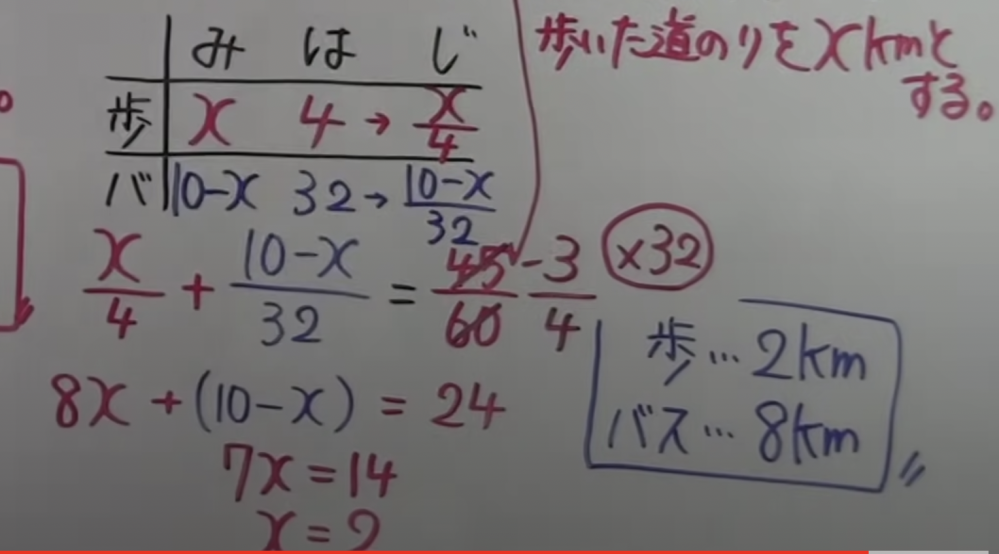 み は じ
歩 x 4 → x/4
バ 10-x 32 → 10-x/32
歩いた道のりをxkmと
する。
x/4 + 10-x/32 = 45/60 - 3/4 ×32
8x + (10-x) = 24
7x = 14
x = 2
歩…2km
バス…8km